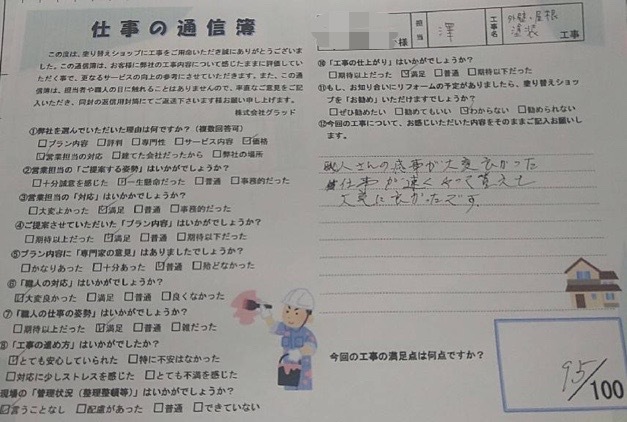 仕事の通信簿
この度は、塗り替えショップに工事をご用命いただき誠にありがとうございました。この通信簿は、お客様に弊社の工事内容について感じたままに評価していただく事で、更なるサービスの向上の参考にさせていただきます。また、この通信簿は、担当者や職人の目に触れることはありませんので、率直なご意見をご記入いただき、同封の返信用封筒にてご返送下さいます様お願い申し上げます。
株式会社グラッド
①弊社を選んでいただいた理由は何ですか?(複数回答可)
□プラン内容 □評判 □専門性 □サービス内容 ☑価格
☑営業担当の対応 □建てた会社だったから □弊社の場所
②営業担当の「ご提案する姿勢」はいかがでしょうか?
□十分誠意を感じた ☑一生懸命だった □普通 □事務的だった
③営業担当の「対応」はいかがでしょうか?
□大変よかった ☑満足 □普通 □事務的だった
④ご提案させていただいた「プラン内容」はいかがでしょうか?
□期待以上だった ☑満足 □普通 □期待以下だった
⑤プラン内容に「専門家の意見」はありましたでしょうか?
□かなりあった □十分あった ☑普通 □殆どなかった
⑥「職人の対応」はいかがでしょうか?
☑大変良かった □満足 □普通 □良くなかった
⑦「職人の仕事の姿勢」はいかがでしょうか?
□期待以上だった ☑満足 □普通 □雑だった
⑧「工事の進め方」はいかがでしたか?
☑とても安心していられた □特に不安はなかった
□対応に少しストレスを感じた □とても不満を感じた
現場の「管理状況(整理整頓等)」はいかがでしょうか?
☑言うことなし □配慮があった □普通 □できていない
様 担当 澤 工事名 外壁・屋根塗装 工事
⑩「工事の仕上がり」はいかがでしょうか?
□期待以上だった ☑満足 □普通 □期待以下だった
⑪もし、お知り合いにリフォームの予定がありましたら、塗り替えショップを「お勧め」いただけますでしょうか?
□ぜひ勧めたい □勧めてもいい ☑わからない □勧められない
⑫今回の工事について、お感じいただいた内容をそのままご記入お願いします。
人さんの感事が大変良かった
仕事が速くやって貰えて
大変に良かたです。
今回の工事の満足点は何点ですか?
95/100